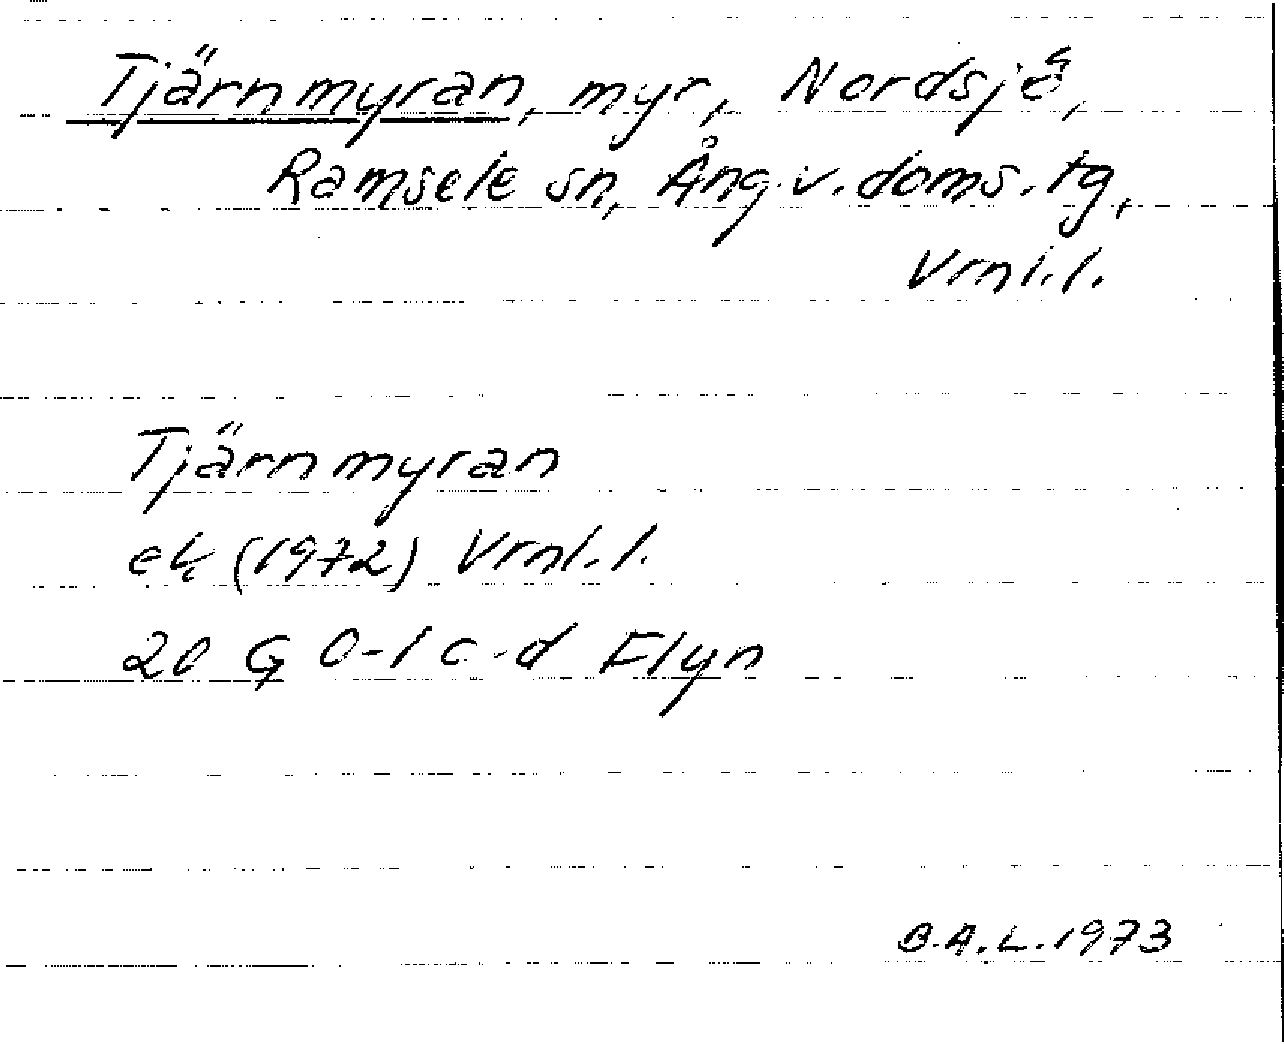 Tjärnmyran, myr, Nordsjö,
Ramsele sn, Ång. v. doms. tg,
Vrnl. l.
Tjärnmyran
ek (1972) Vrnl. l.
20 G 0-1 c-d Flyn
B.A.L. 1973